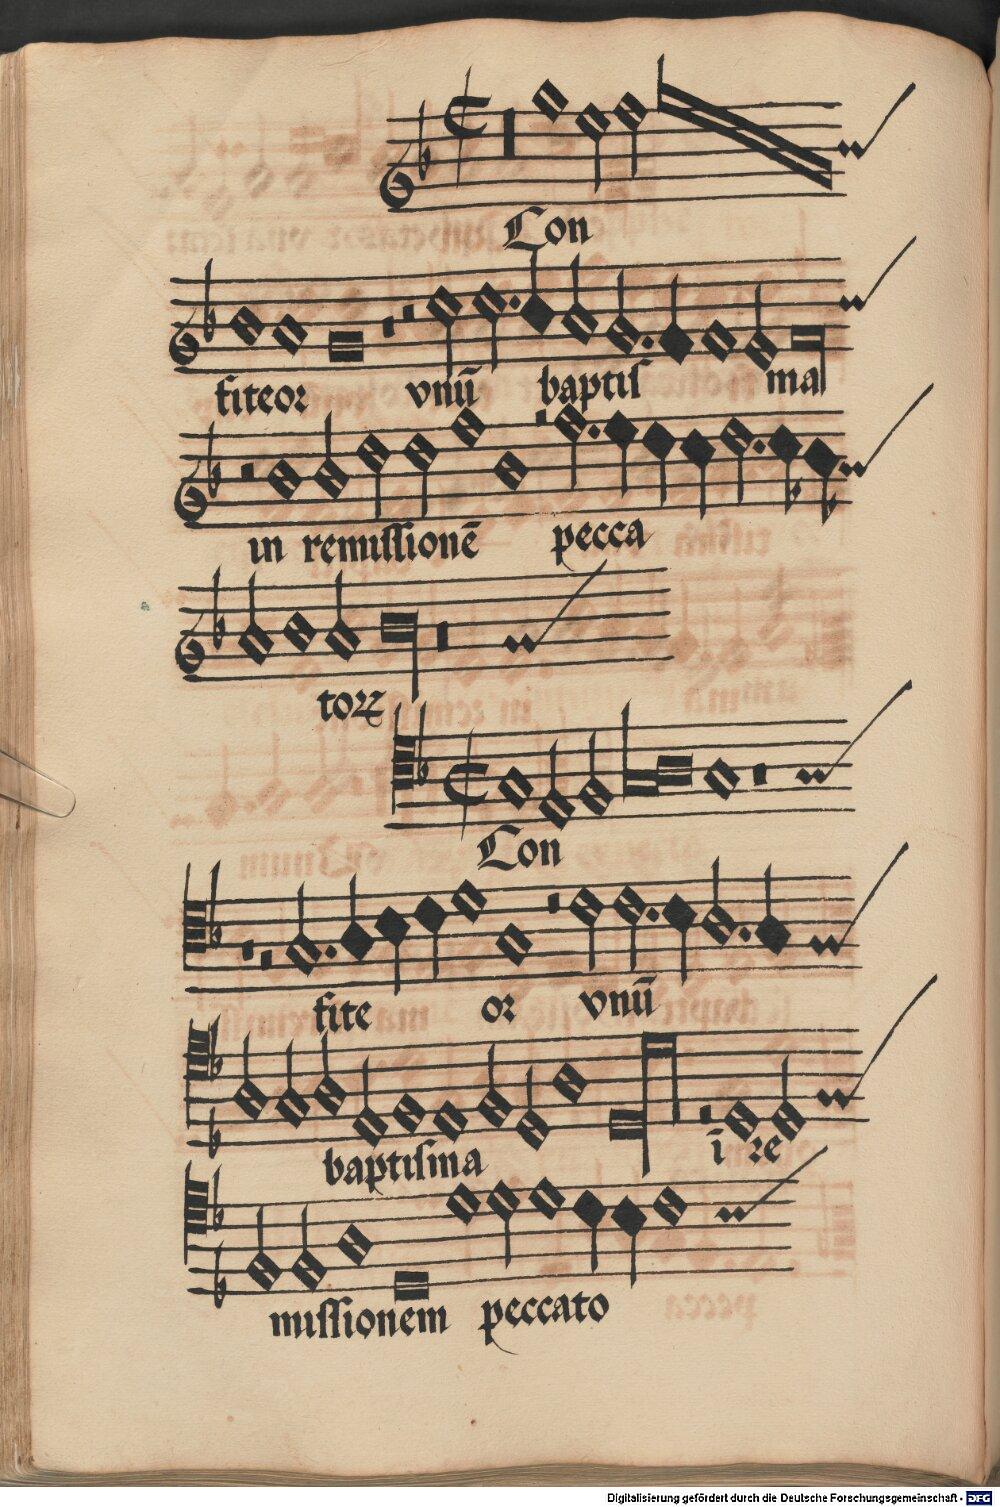 Con
fiteor vnū baptis ma
in remissionē pecca
toꝝ
Con
fite or vnū
baptisma ī re
missionem peccato
Digitalisierung gefördert durch die Deutsche Forschungsgemeinschaft - DFG